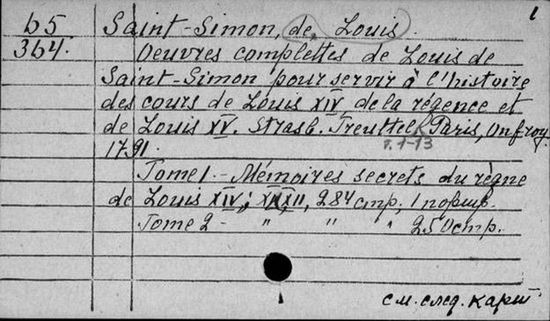 1
65 Saint-Simon, de, Louis.
364. Oeuvres complettes de Louis de
Saint-Simon pour servir à l'histoire
des cours de Louis XIV de la régence et
de Louis XV. Strasb. Treuttel, Paris, Onfroy.
т. 1-13
1791.
Tome 1 - Mémoires secrets du règne
de Louis XIV; XXXII, 284 стр., 1 портр.
Tome 2 - " " " 250 стр.
см. след. карт